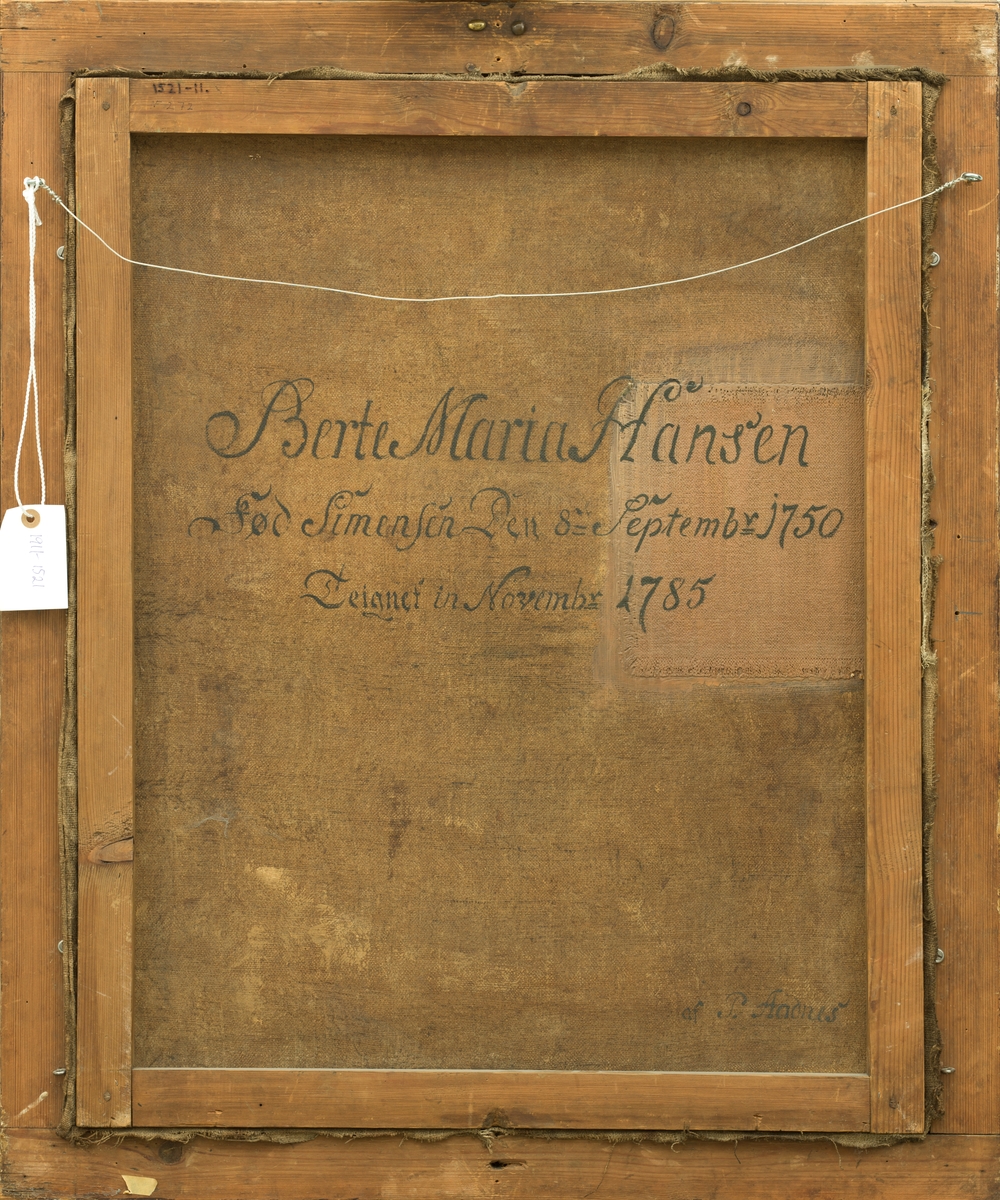 1521-11.
Berte Maria Hansen
Fød Simensen Den 8de Septembr 1750
Teignet in Novembr 1785
af P. Aadnes
1521